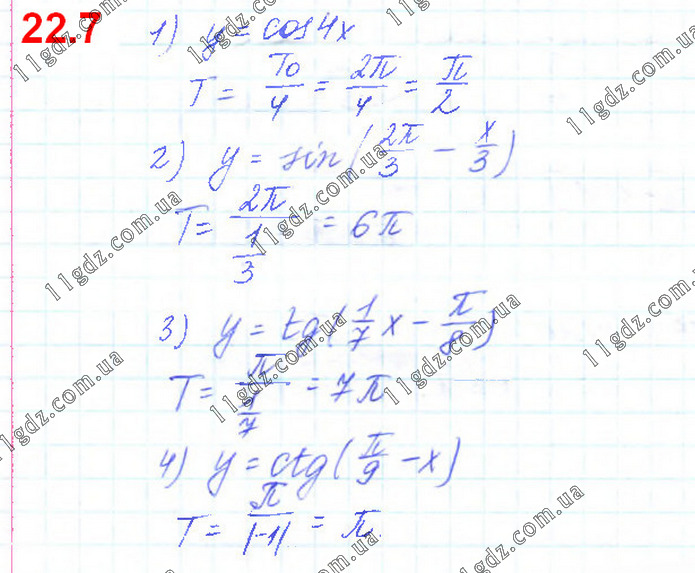 22.7
1) y = cos 4x
T = T₀/4 = 2π/4 = π/2
2) y = sin(2π/3 − x/3)
T = 2π/(1/3) = 6π
3) y = tg(1/7 x − π/8)
T = π/(1/7) = 7π
4) y = ctg(π/9 − x)
T = π/|−1| = π.
11gdz.com.ua
11gdz.com.ua
11gdz.com.ua
11gdz.com.ua
11gdz.com.ua
11gdz.com.ua
11gdz.com.ua
11gdz.com.ua
11gdz.com.ua
11gdz.com.ua
11gdz.com.ua
11gdz.com.ua